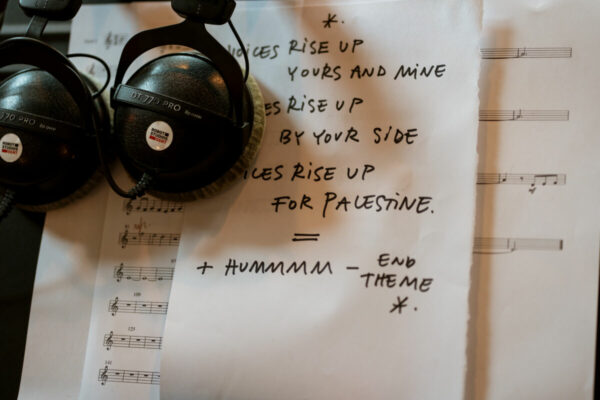 *.
OICES RISE UP
YOURS AND MINE
ES RISE UP
BY YOUR SIDE
ICES RISE UP
FOR PALESTINE.
=
+ HUMMMM – END THEME
*.
DT 770 PRO
770 PRO
109
125
141